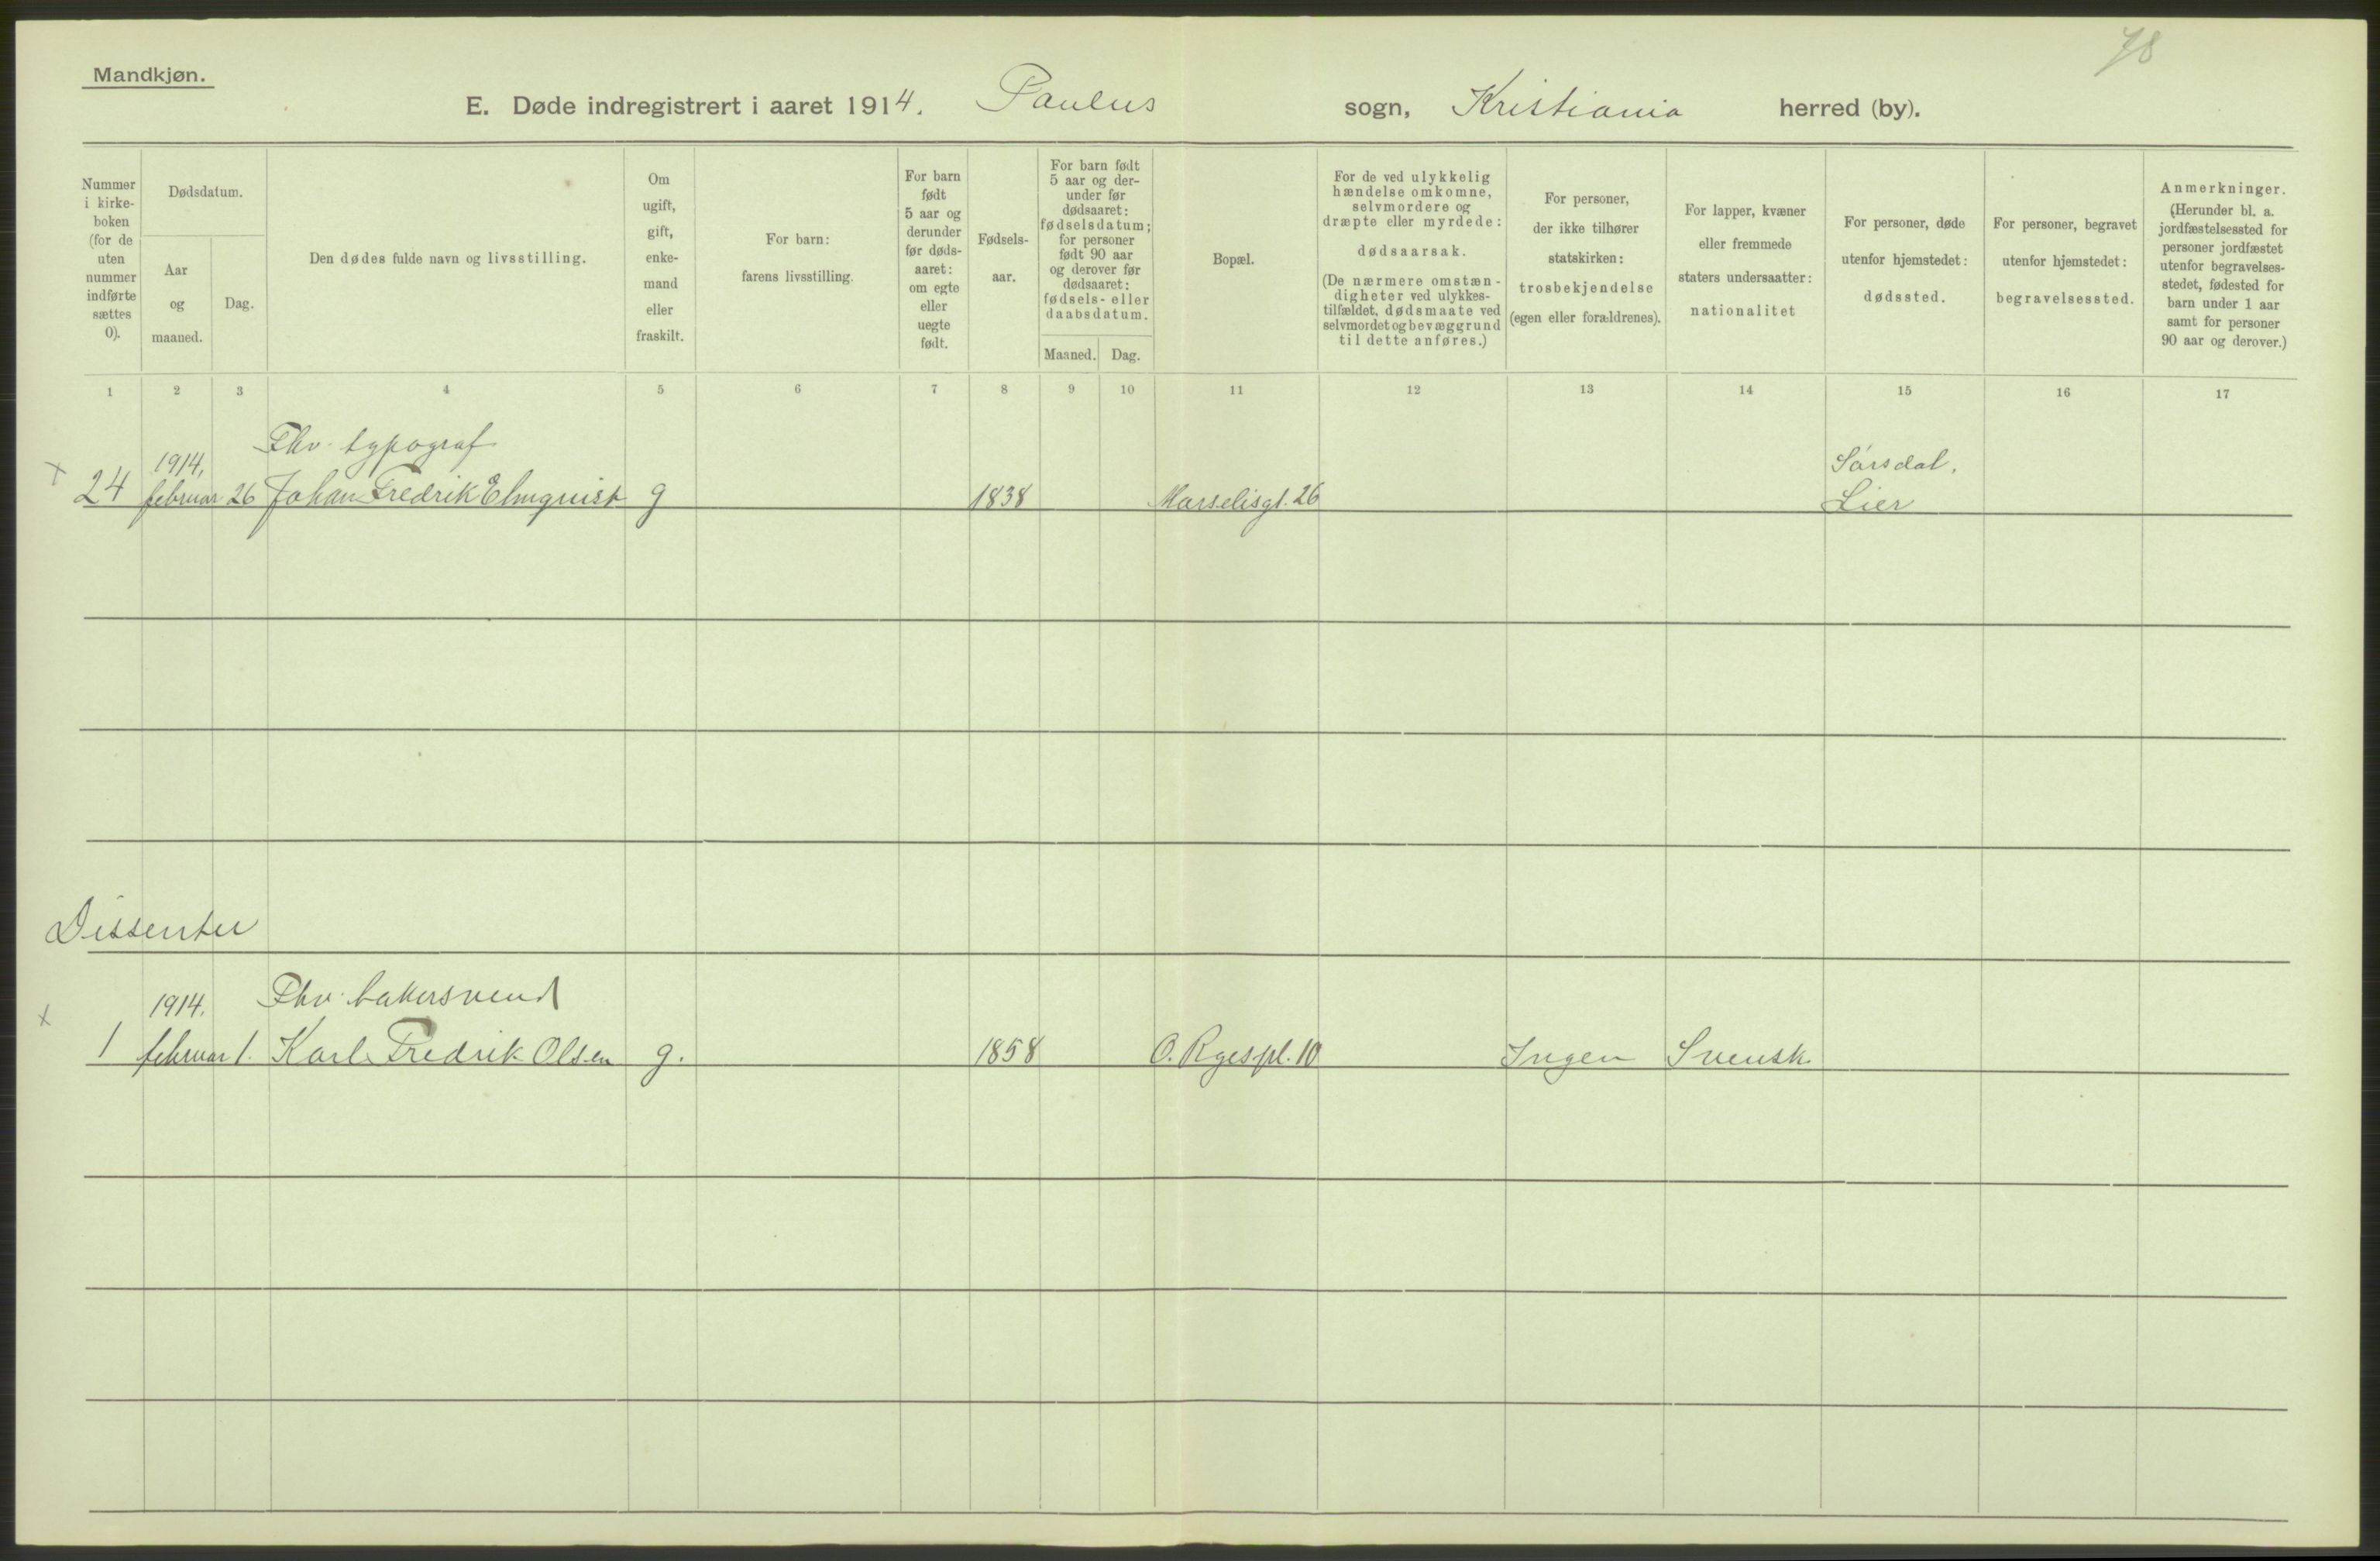 78
Mandkjøn.
E. Døde indregistrert i aaret 1914. Paulus sogn, Kristiania herred (by).
Nummer
i kirke-
boken
(for de
uten
nummer
indførte
sættes
0).
Dødsdatum.
Aar
og
maaned.
Dag.
Den dødes fulde navn og livsstilling.
Om
ugift,
gift,
enke-
mand
eller
fraskilt.
For barn:
farens livsstilling.
For barn
født
5 aar og
derunder
før døds-
aaret:
om egte
eller
uegte
født.
Fødsels-
aar.
For barn født
5 aar og der-
under før
dødsaaret:
fødselsdatum;
for personer
født 90 aar
og derover før
dødsaaret:
fødsels- eller
daabsdatum.
Maaned.
Dag.
Bopæl.
For de ved ulykkelig
hændelse omkomne,
selvmordere og
dræpte eller myrdede:
dødsaarsak.
(De nærmere omstæn-
digheter ved ulykkes-
tilfældet, dødsmaate ved
selvmordet og bevæggrund
til dette anføres.)
For personer,
der ikke tilhører
statskirken:
trosbekjendelse
(egen eller forældrenes).
For lapper, kvæner
eller fremmede
staters undersaatter:
nationalitet
For personer, døde
utenfor hjemstedet:
dødssted.
For personer, begravet
utenfor hjemstedet:
begravelsessted.
Anmerkninger.
(Herunder bl. a.
jordfæstelsessted for
personer jordfæstet
utenfor begravelses-
stedet, fødested for
barn under 1 aar
samt for personer
90 aar og derover.)
1 2 3 4 5 6 7 8 9 10 11 12 13 14 15 16 17
1914, Fhv. typograf Sørsdal,
x 24 februar 26 Johan Fredrik Elmquist g 1838 Marselisgt. 26 Lier
Dissenter
1914. Fhv. bakersvend
x 1 februar 1. Karl Fredrik Olsen g. 1858 O. Ryespl. 10 Ingen Svensk